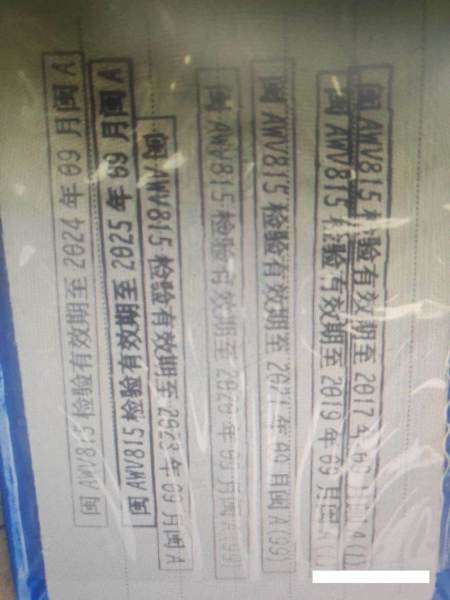 闽AWV815检验有效期至2017年
闽AWV815检验有效期至2019年09月闽A
闽AWV815检验有效期至2021年09月闽A(99)
闽AWV815检验有效期至2020年09月闽A(99)
闽AWV815检验有效期至2023年09月闽A
闽AWV815检验有效期至2025年09月闽A
闽AWV815检验有效期至2024年09月闽A